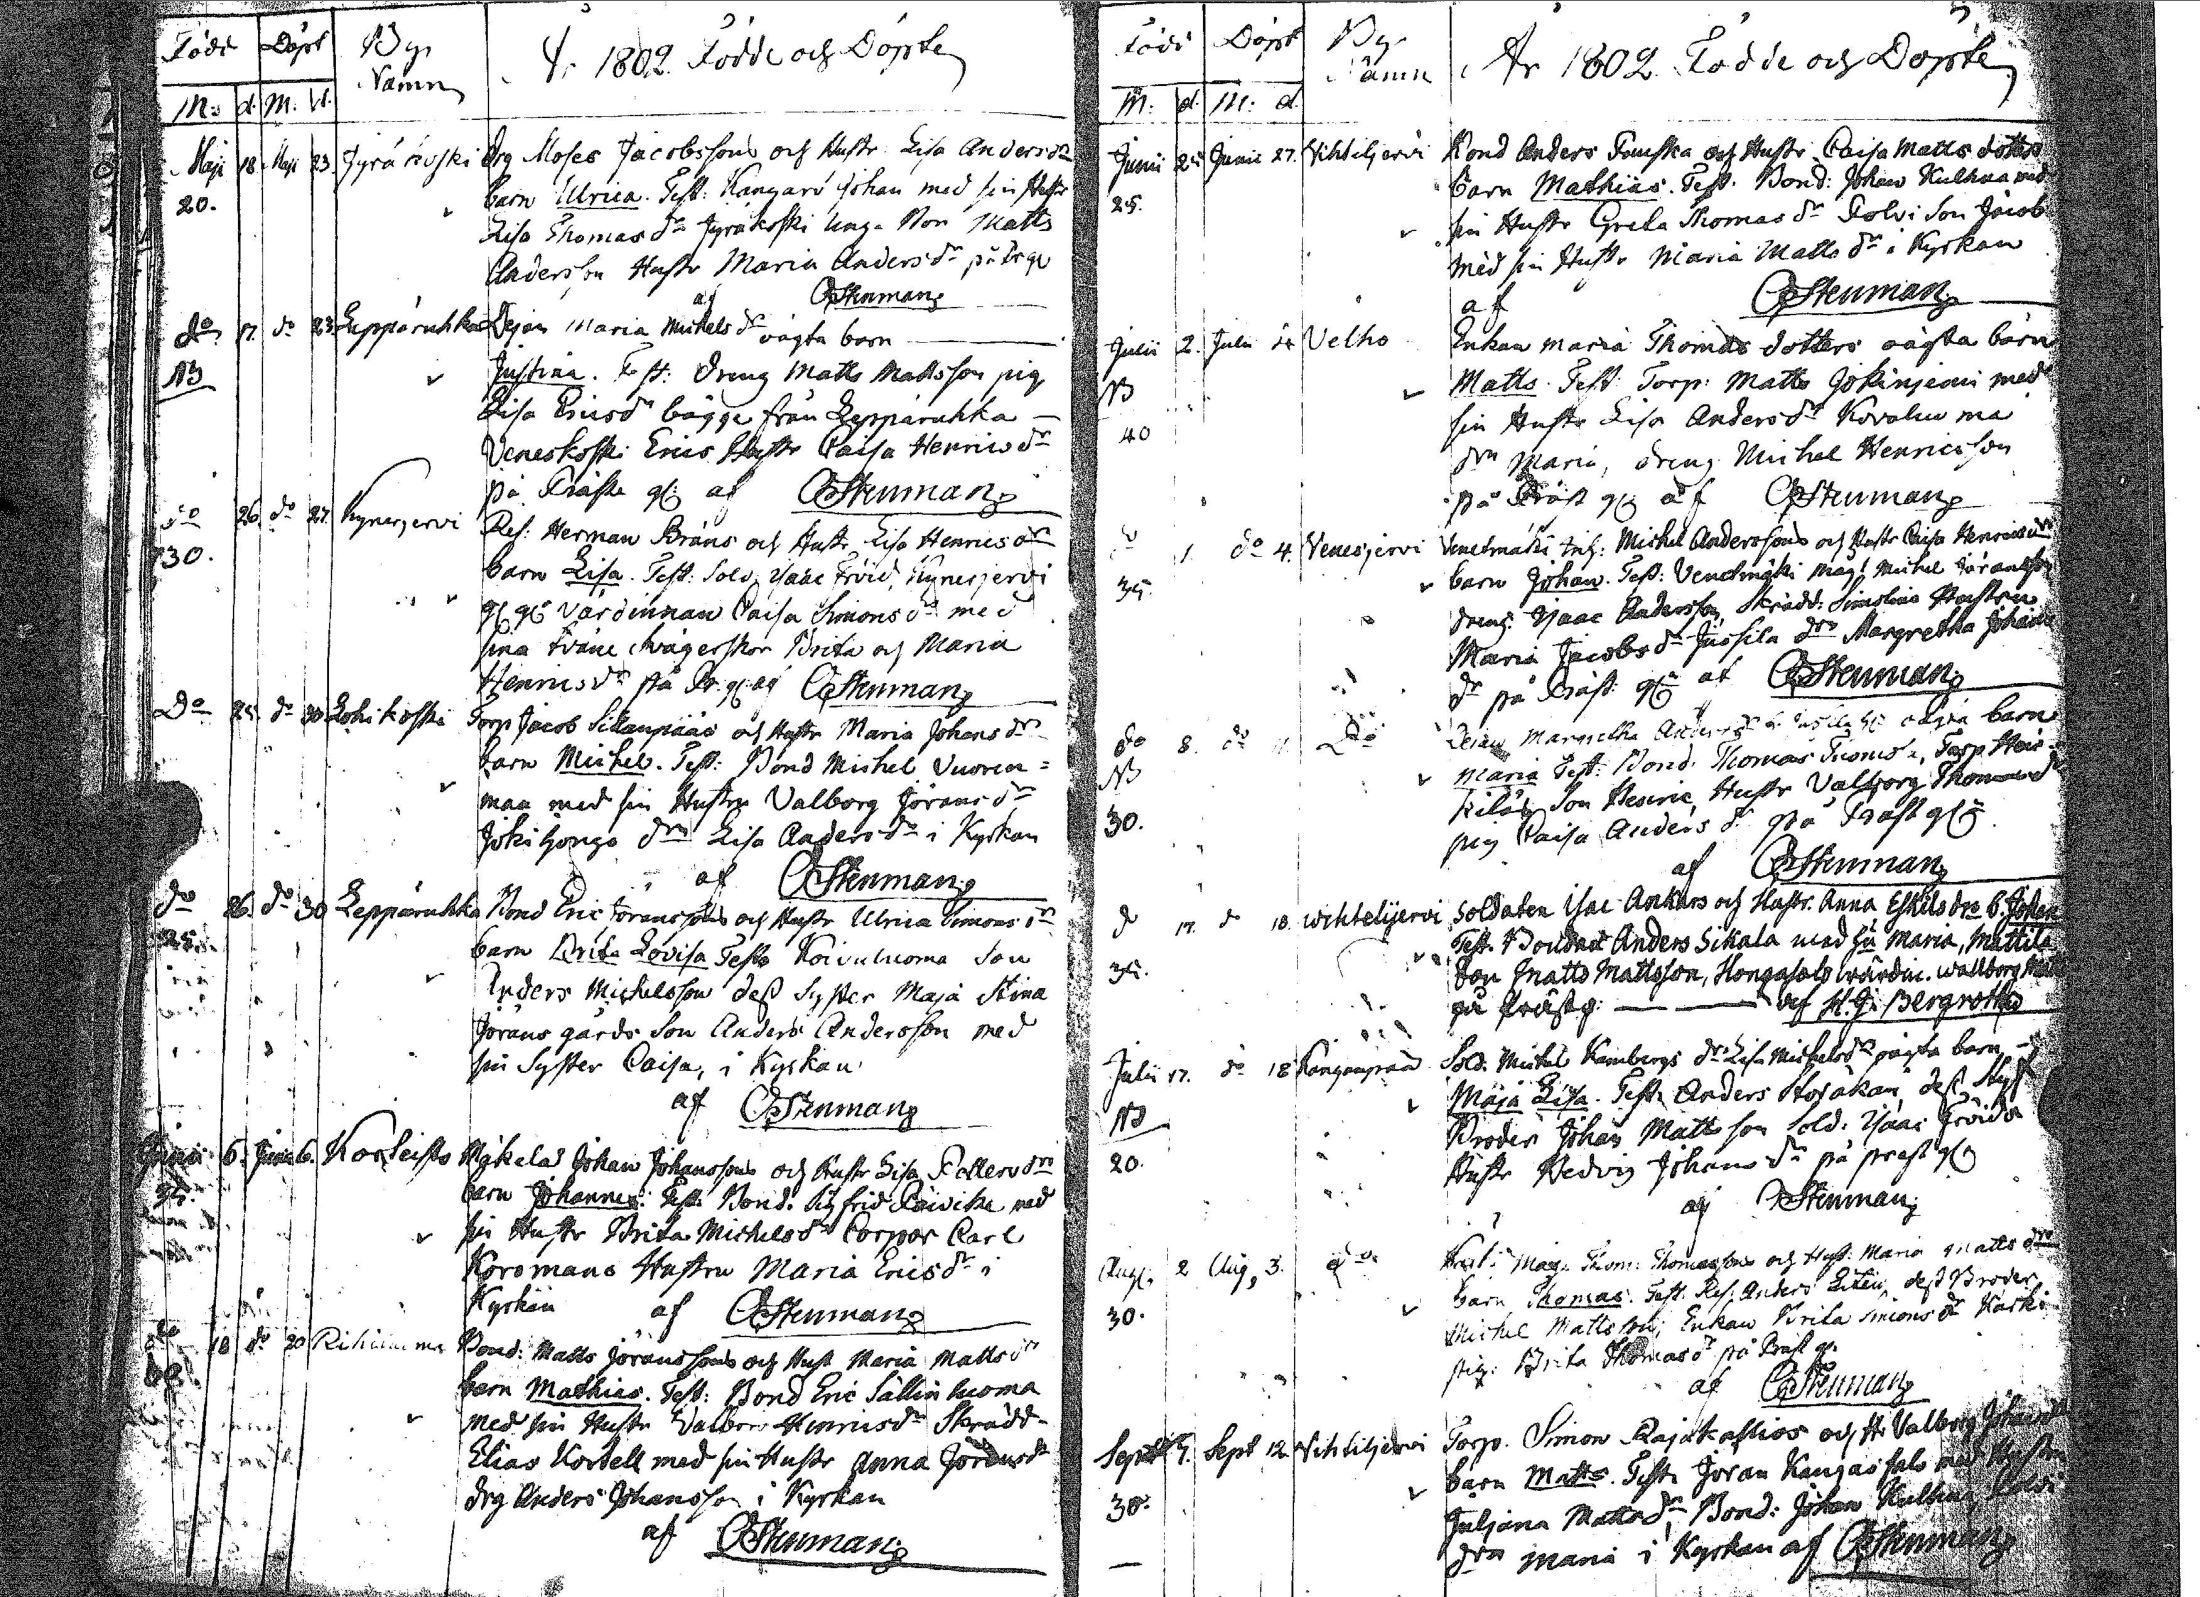 Född Döpt By Namn År 1802 Födde och Döpte
M: d. M: d.
Maji 18 Maji 23 Jyräkoski Drg Moses Jacobssons och Hustr Lisa Andersdr
20. barn Ulrica. Test: Kangari Johan med sin Hustr
Lisa Thomas dr Jyräkoski Unga Mor Matts
Andersson Hustr Maria Anders dr på
af CStenman
do 17. do 23 Leppäruhka Pejan Maria Michels dr oägta barn
NB Justina. Test: Dreng Matts Mattsson pig
Lisa Ericsdr bägge från Leppäruhka
Veneskoski Erics Hustr Caisa Henricsdr
på Präste gl af CStenman
do 26 do 27. Kynesjervi Res: Herman Bräns och Hustr Lisa Henricsdr
30. barn Lisa. Test: Sold. Isaac Fröid, Kynesjervi
Värdinnan Caisa Simons dr med
sina tväne svägerskor Brita och Maria
Henricsdr på Pr. gl. af CStenman
Do 25 do 30 Lohikoski Torp Jacob Sillanpääs och Hustr Maria Johans dr
barn Michel. Test: Bond Michel Vuoren=
maa med sin Hustru Valborg Jörans dr
Jokihonga drn Lisa Anders dr i Kyrkan
af CStenman
do 26. do 30 Leppäruhka Bond Eric Jöranssons och Hustr Ulrica Simons dr
barn Brita Lovisa Test: Koivuluoma Son
Anders Michelsson dess Syster Maja Stina
Jöransgårds Son Anders Andersson med
sin Syster Caisa, i Kyrkan
af CStenman
Junii 6. Junii 6. Korteisto Mäkelas Johan Johanssons och Hustr Lisa
barn Johannes: Test: Bond. Sigfrid Päivike med
sin Hustr Brita Michelsdr Corpor Carl
Koromans Hustru Maria Ericsdr i
Kyrkan af CStenman
do 18 do 20 Rihiluoma Bond: Matts Jöranssons och Hust Maria Mattsdr
barn Mathias. Test: Bond Eric Sällinluoma
med sin Hustr Valborg Henricsdr Skrädd-
Elias Kortell med sin Hustr Anna Jöransdr
drg Anders Johansson i Kyrkan
af CStenman
Född Döpt By Namn År 1802 Födde och Döpte
M: d. M: d.
Junii 25 Junii 27. Vihteljervi Bond Anders Fruska och Hustr Caisa Matts dotters
25. barn Mathias. Test. Bond: Johan Kulhua med
sin Hustr Greta Thomas dr Kolvi Son Jacob
med sin Hustr Maria Matts dr i Kyrkan
af CStenman
Julii 2. Julii 4 Velho Enkan Maria Thomas dotters oägta barn
NB Matts. Test: Torp: Matts Jokinjemi med
40 sin Hustr Lisa Anders dr Kovaluoma
drn Maria, dreng Michel Henricsson
på Präst gl af CStenman
do 1. do 4. Venesjervi Venetmäki Inh: Michel Anderssons och Hustr Caisa Henricsdr
35. barn Johan. Test: Venetmäki Måg Michel Jöransson
dreng. Isaac Andersson Skrädd: Hustru
Maria Jacobs dr Jussila drn Margretha Johans
dr på Präst. gl af CStenman
do 8. do 11. Do Pejan Margretha Anders dr oägta barn
NB Maria Test: Bond. Thomas Thomasson, Torp
30. Son Henric, Hustr Valborg Thomasdr
pig Caisa Anders dr på Präst gl
af CStenman
d 17. d 18. Wihtelijervi Soldaten Isac Ankars och Hustr. Anna Eskils dr b. Johan
35. Test. Bonden Anders Sikala med Hu Maria, Mattila
Son Matts Mattsson, Hongasalo Wärdin. Wallborg Matts
på Prästg: af H. G. Bergroth
Julii 17. do 18 Kanganpää Sold. Michel Kambergs dr Lisa Michelsdr oägta barn
NB Maja Lisa. Test: Anders Hosåkan, dess Styf
20. Broder Johan Mattsson Sold. Isaac Fröids
Hustr Hedvig Johans dr på prest gl
af CStenman
Aug. 2 Aug, 3. do Måg. Thom: Thomassons och Hust: Maria Matts dr
30. barn Thomas. Test. Res: Anders Liten, dess Broder,
Michel Mattsson, Enkan Brita Simons dr Karki
pig: Brita Thomas dr på Präst gl.
af CStenman
Septr 7. Sept 12 Vihteljervi Torp. Simon Rajakallios och H. Valborg Johansdr
30. barn Matts. Test: Jöran Kangassalo med Hustru
Juliana Matts dr Bond: Johan Kulhua, Kolvi
drn Maria i Kyrkan af CStenman